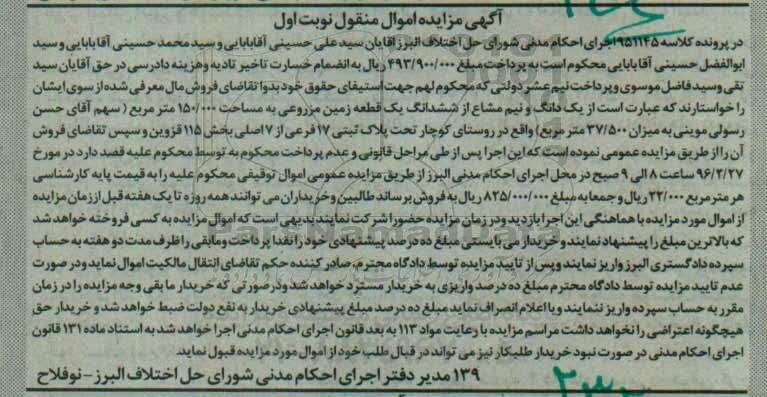 آگهی مزایده اموال منقول نوبت اول
در پرونده کلاسه ۹۵۱۱۴۵اجرای احکام مدنی شورای حل اختلاف البرز اقایان سید علی حسینی آقابابایی و سید محمد حسینی آقابابایی و سید
ابوالفضل حسینی آقابابایی محکوم است به پرداخت مبلغ ۴۹۳/۹۰۰/۰۰۰ ریال به انضمام خسارت تاخیر تادیه وهزینه دادرسی در حق آقایان سید
تقی وسید فاضل موسوی و پرداخت نیم عشر دولتی که محکوم لهم جهت استیفای حقوق خود بدوا تقاضای فروش مال معرفی شده از سوی ایشان
را خواستارند که عبارت است از یک دانگ و نیم مشاع از ششدانگ یک قطعه زمین مزروعی به مساحت ۱۵۰/۰۰۰ متر مربع ( سهم آقای حسن
رسولی موینی به میزان ۳۷/۵۰۰ متر مربع) واقع در روستای کوچار تحت پلاک ثبتی ۱۷ فرعی از ۷ اصلی بخش ۱۱۵ قزوین و سپس تقاضای فروش
آن را از طریق مزایده عمومی نموده است که این اجرا پس از طی مراحل قانونی و عدم پرداخت محکوم به توسط محکوم علیه قصد دارد در مورخ
۹۶/۲/۲۷ ساعت ۸ الی ۹ صبح در محل اجرای احکام مدنی البرز از طریق مزایده عمومی اموال توقیفی محکوم علیه را به قیمت پایه کارشناسی
هر متر مربع ۲۲/۰۰۰ ریال و جمعا به مبلغ ۸۲۵/۰۰۰/۰۰۰ ریال به فروش برساند طالبین وخریداران می توانند همه روزه تا یک هفته قبل از زمان مزایده
از اموال مورد مزایده با هماهنگی این اجرا بازدید ودر زمان مزایده حضور/شرکت نمایند بدیهی است که اموال مزایده به کسی فروخته خواهد شد
که بالاترین مبلغ را پیشنهاد نمایند و خریدار می بایستی مبلغ ده درصد پیشنهادی خود را نقدا پرداخت ومابقی را ظرف مدت دو هفته به حساب
سپرده دادگستری البرز واریز نمایند و پس از تایید مزایده توسط دادگاه محترم، صادر کننده حکم تقاضای انتقال مالکیت اموال نماید ودر صورت
عدم تایید مزایده توسط دادگاه محترم مبلغ ده درصد واریزی به خریدار مسترد خواهد شد ودر صورتی که خریدار ما بقی وجه مزایده را در زمان
مقرر به حساب سپرده واریز ننمایند و یا اعلام انصراف نماید مبلغ ده درصد مبلغ پیشنهادی خریدار به نفع دولت ضبط خواهد شد و خریدار حق
هیچگونه اعتراضی را نخواهد داشت مراسم مزایده با رعایت مواد ۱۱۳ به بعد قانون اجرای احکام مدنی اجرا خواهد شد به استناد ماده ۱۳۱ قانون
اجرای احکام مدنی در صورت نبود خریدار طلبکار نیز می تواند در قبال طلب خود از اموال مورد مزایده قبول نماید.
۱۳۹ مدیر دفتر اجرای احکام مدنی شورای حل اختلاف البرز - نوفلاح